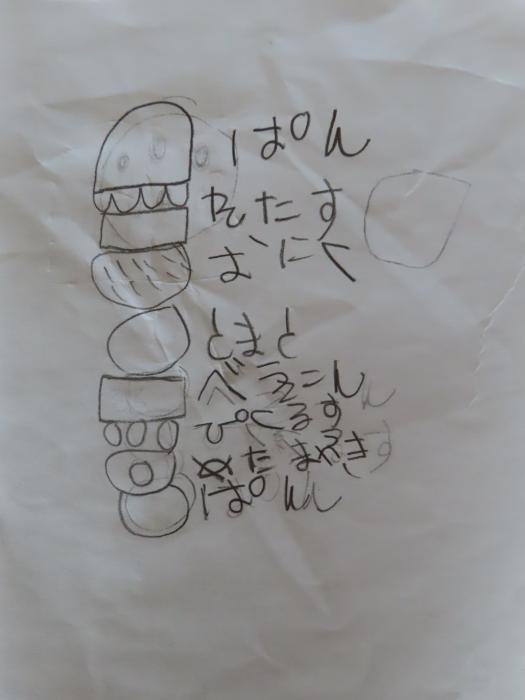 ぱん
れたす
おにく
とまと
べえこん
ぴくるす
めだまやき
ぱん